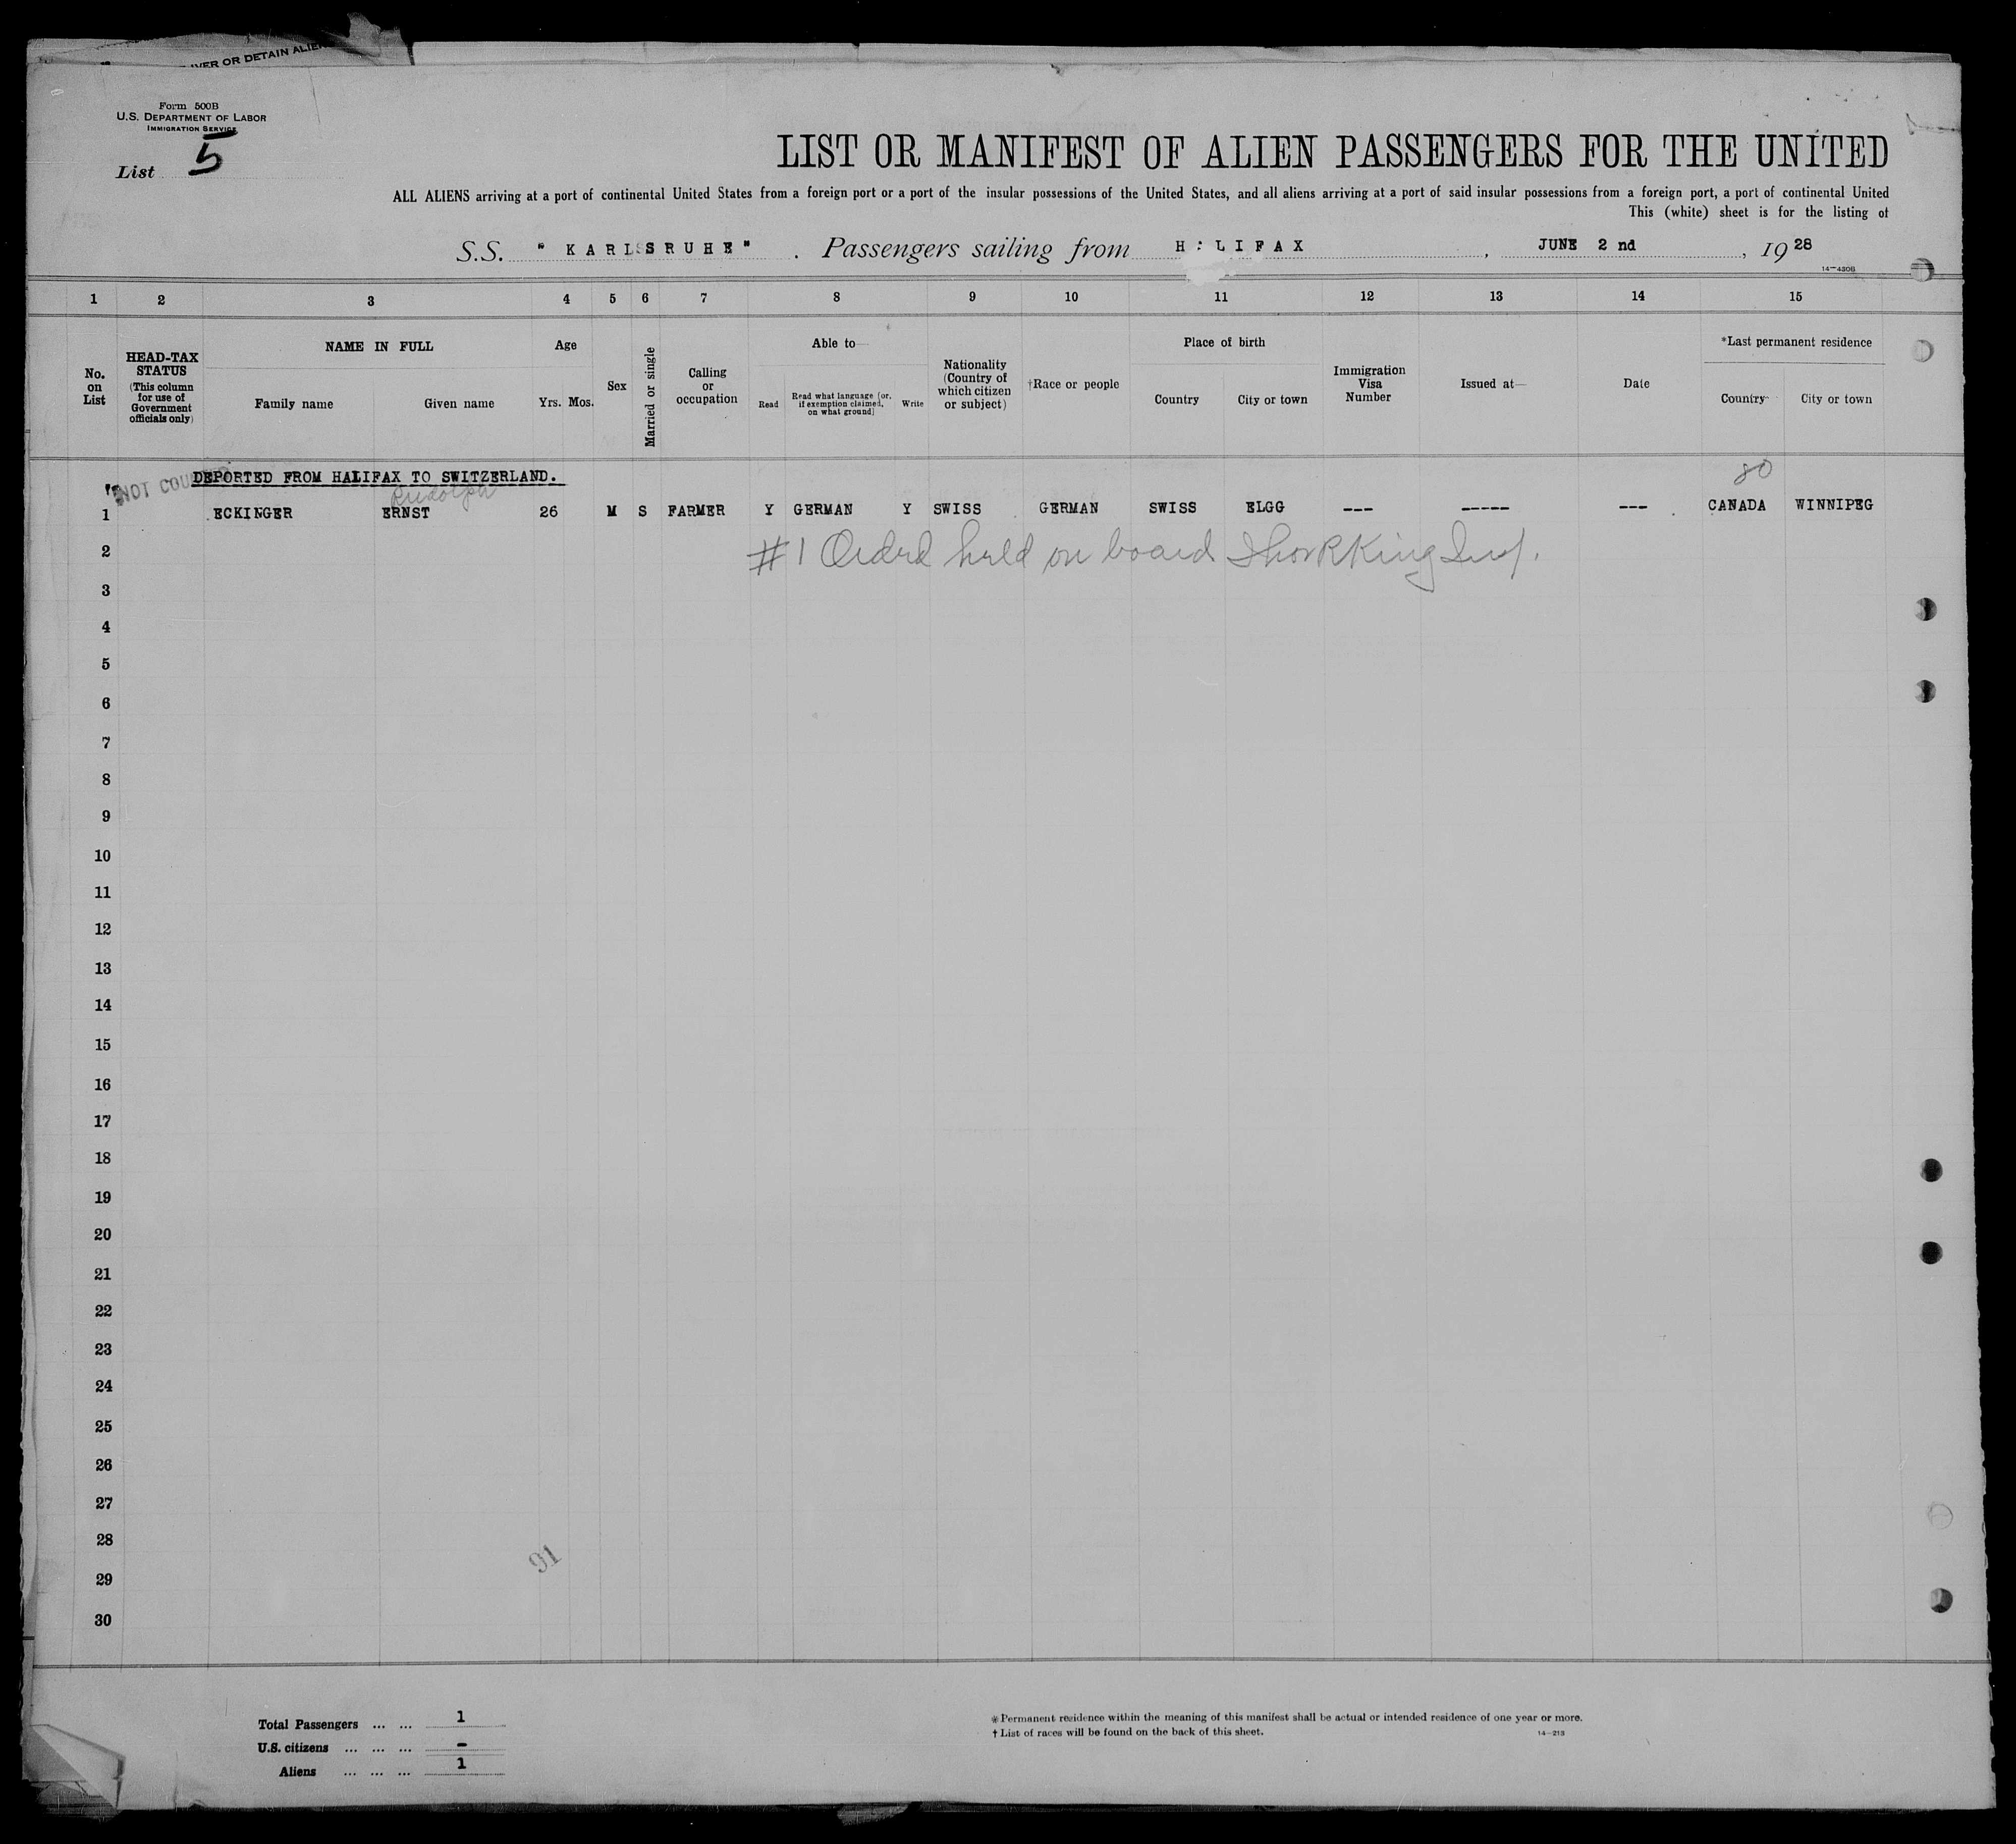 IVER OR DETAIN ALIEN
Form 500B
U.S. DEPARTMENT OF LABOR
IMMIGRATION SERVICE
List 5
LIST OR MANIFEST OF ALIEN PASSENGERS FOR THE UNITED
ALL ALIENS arriving at a port of continental United States from a foreign port or a port of the insular possessions of the United States, and all aliens arriving at a port of said insular possessions from a foreign port, a port of continental United
This (white) sheet is for the listing of
S.S. " KARLSRUHE" . Passengers sailing from HALIFAX , JUNE 2 nd , 19 28
14-430B
1 2 3 4 5 6 7 8 9 10 11 12 13 14 15
No. on List
HEAD-TAX STATUS (This column for use of Government officials only)
NAME IN FULL
Family name Given name
Age
Yrs. Mos.
Sex
Married or single
Calling or occupation
Able to—
Read
Read what language [or, if exemption claimed, on what ground]
Write
Nationality (Country of which citizen or subject)
†Race or people
Place of birth
Country City or town
Immigration Visa Number
Issued at—
Date
*Last permanent residence
Country City or town
DEPORTED FROM HALIFAX TO SWITZERLAND.
80
NOT COU
Rudolph
1 ECKINGER ERNST 26 M S FARMER Y GERMAN Y SWISS GERMAN SWISS ELGG --- ----- --- CANADA WINNIPEG
2
#1 Ordrd held on board King
3
4
5
6
7
8
9
10
11
12
13
14
15
16
17
18
19
20
21
22
23
24
25
26
27
28
91
29
30
Total Passengers ... ... 1
U.S. citizens ... ... ... -
Aliens ... ... ... 1
*Permanent residence within the meaning of this manifest shall be actual or intended residence of one year or more.
†List of races will be found on the back of this sheet.
14-213